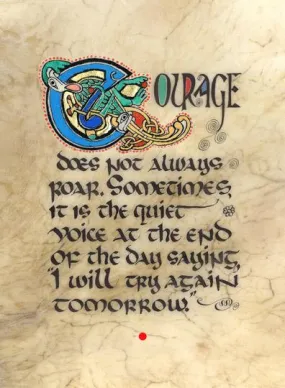 COURAGE
does not always
roar. Sometimes,
it is the quiet
voice at the end
of the day saying,
"I will try again
tomorrow."